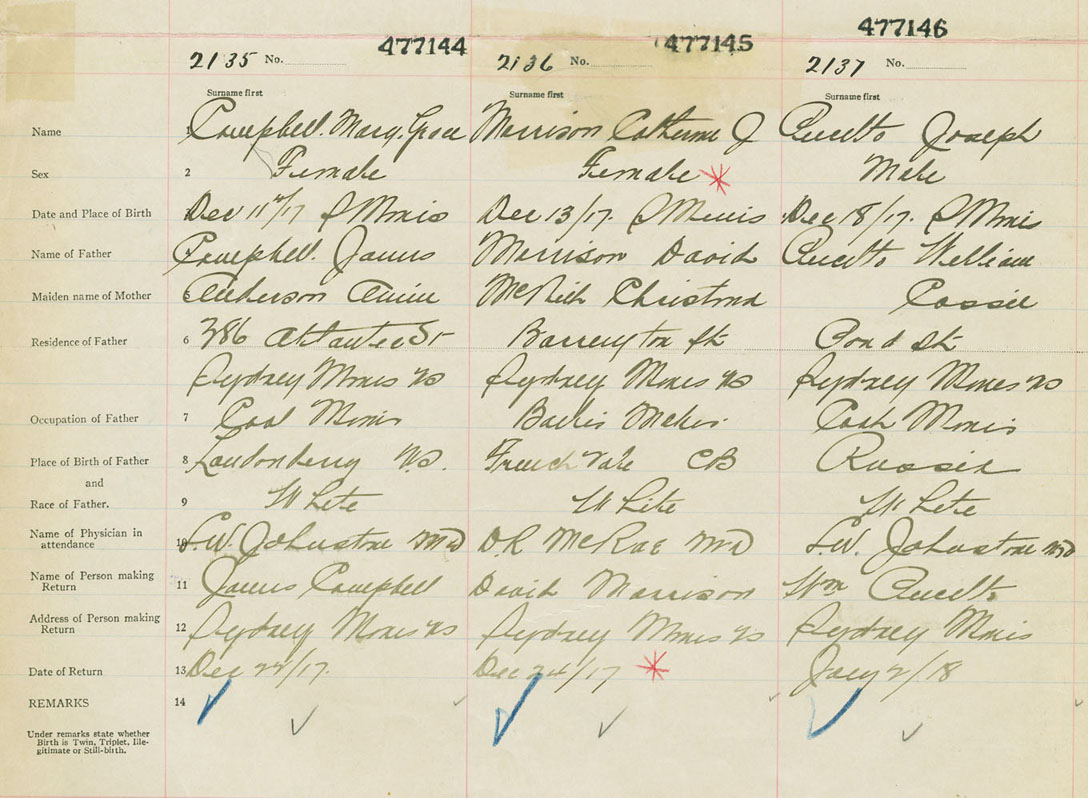 477144 477145 477146
2135 No. 2136 No. 2137 No.
Surname first Surname first Surname first
Name 1 Campbell. Mary. Grace Morrison Catherine J Joseph
Sex 2 Female Female Male
Date and Place of Birth Dec 11th/17 S Mines Dec 13/17. S Mines Dec 18/17. S Mines
Name of Father 4 Campbell. James Morrison David William
Maiden name of Mother 5 Annie Christena
Residence of Father 6 386 Atlantic St Barrington St Pond St
Sydney Mines NS Sydney Mines NS Sydney Mines NS
Occupation of Father 7 Coal Miner Maker Coal Miner
Place of Birth of Father 8 Londonderry NS. French Vale CB Russia
and
Race of Father. 9 White White White
Name of Physician in
attendance 10 L.W. Johnstone MD D.R McRae MD L.W. Johnstone MD
Name of Person making
Return 11 James Campbell David Morrison Wm
Address of Person making
Return 12 Sydney Mines NS Sydney Mines NS Sydney Mines
Date of Return 13 Dec /17. Dec 24/17 Jany 2/18
REMARKS 14
Under remarks state whether
Birth is Twin, Triplet, Ille-
gitimate or Still-birth.